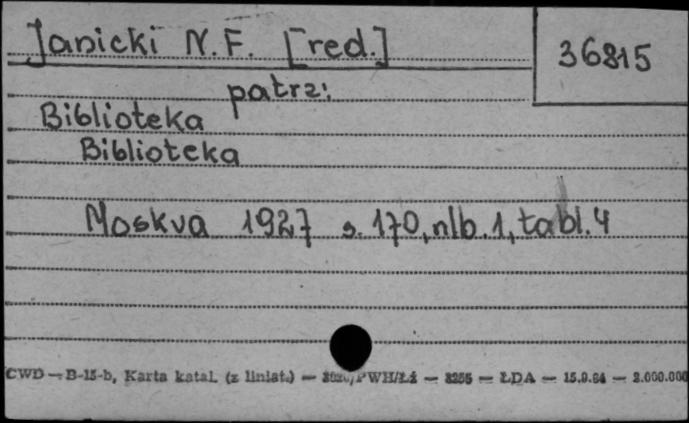 Janicki N.F. [red.]
36815
patrz:
Biblioteka
Biblioteka
Moskva 1927 s. 170, nlb. 1, tabl. 4
CWD — B-15-b, Karta katal. (z liniat.) — PWH/Łż — 3255 — ŁDA — 15.9.64 — 2.000.000